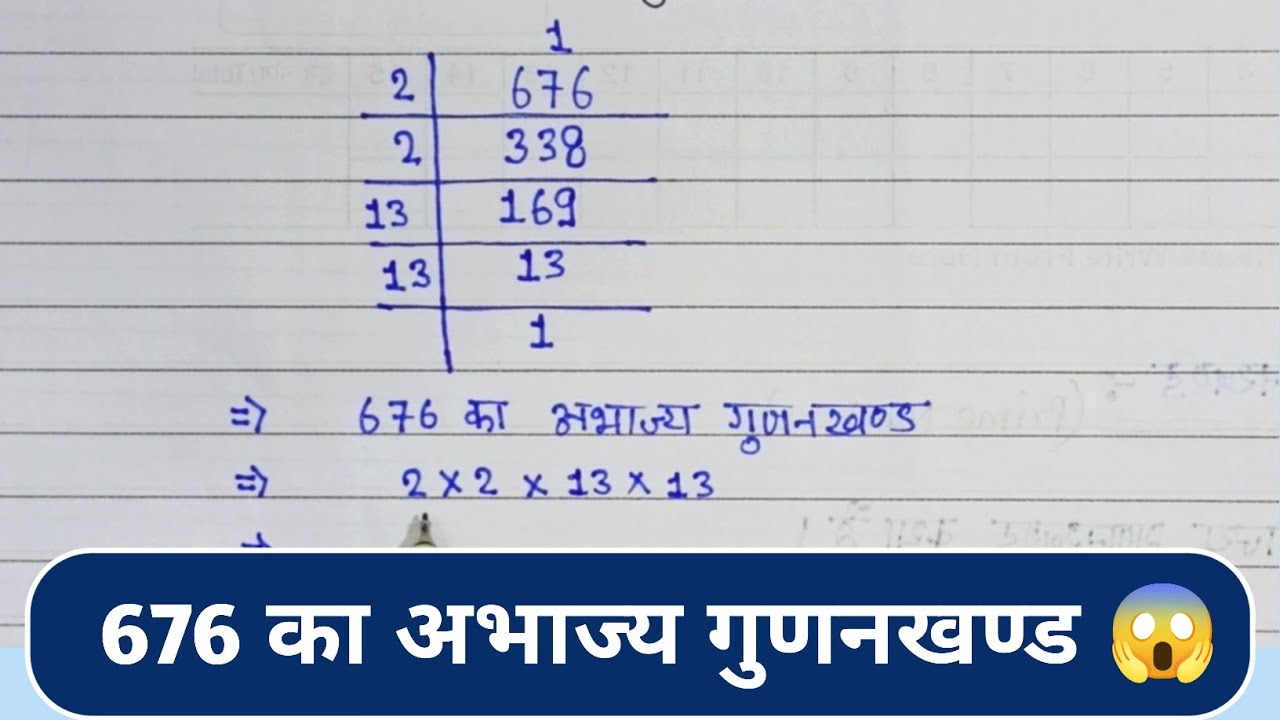 1
2 676
2 338
13 169
13 13
1
=> 676 का अभाज्य गुणनखण्ड
=> 2 × 2 × 13 × 13
=>
676 का अभाज्य गुणनखण्ड 😱